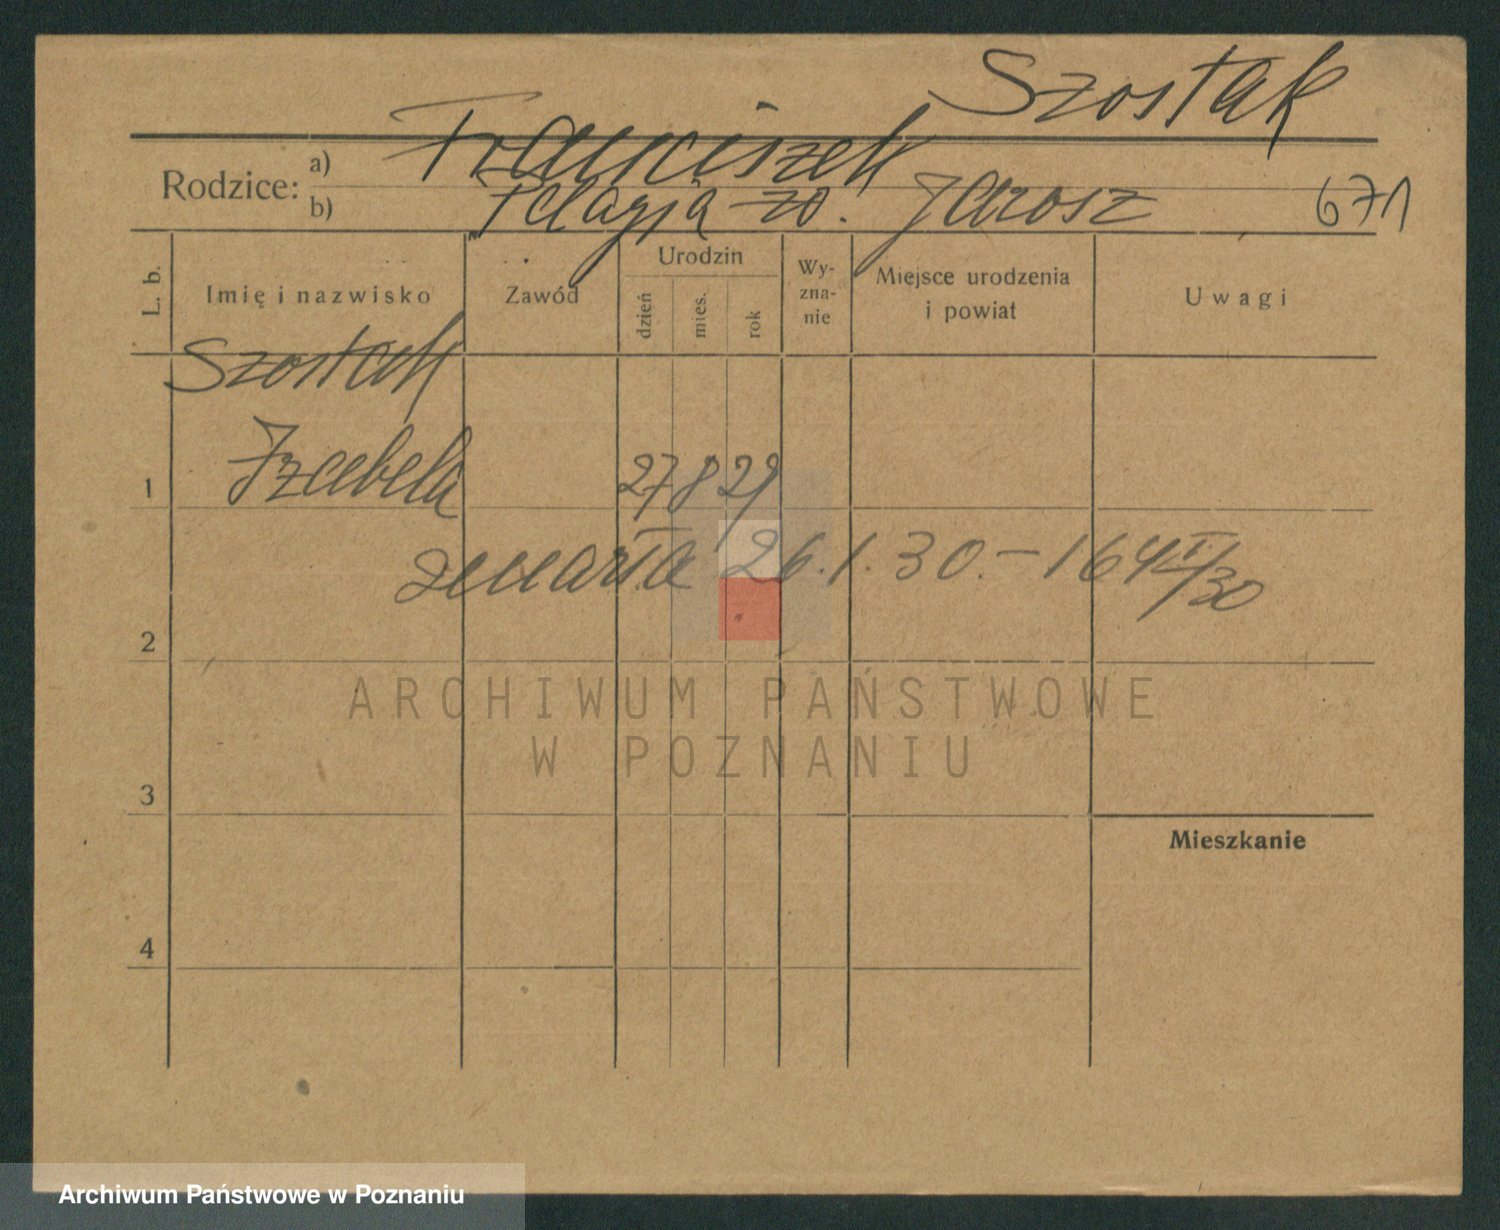 Szostak
Franciszek
Rodzice: a)
b) Pelagja zo. Jarosz 671
L. b. Imię i nazwisko Zawód Urodzin dzień mies. rok Wy-zna-nie Miejsce urodzenia i powiat Uwagi
Szostak
1 Izabela 27 8 29
zmarła 26.1.30. – 164 II/30
2
ARCHIWUM PAŃSTWOWE
W POZNANIU
3
Mieszkanie
4
Archiwum Państwowe w Poznaniu